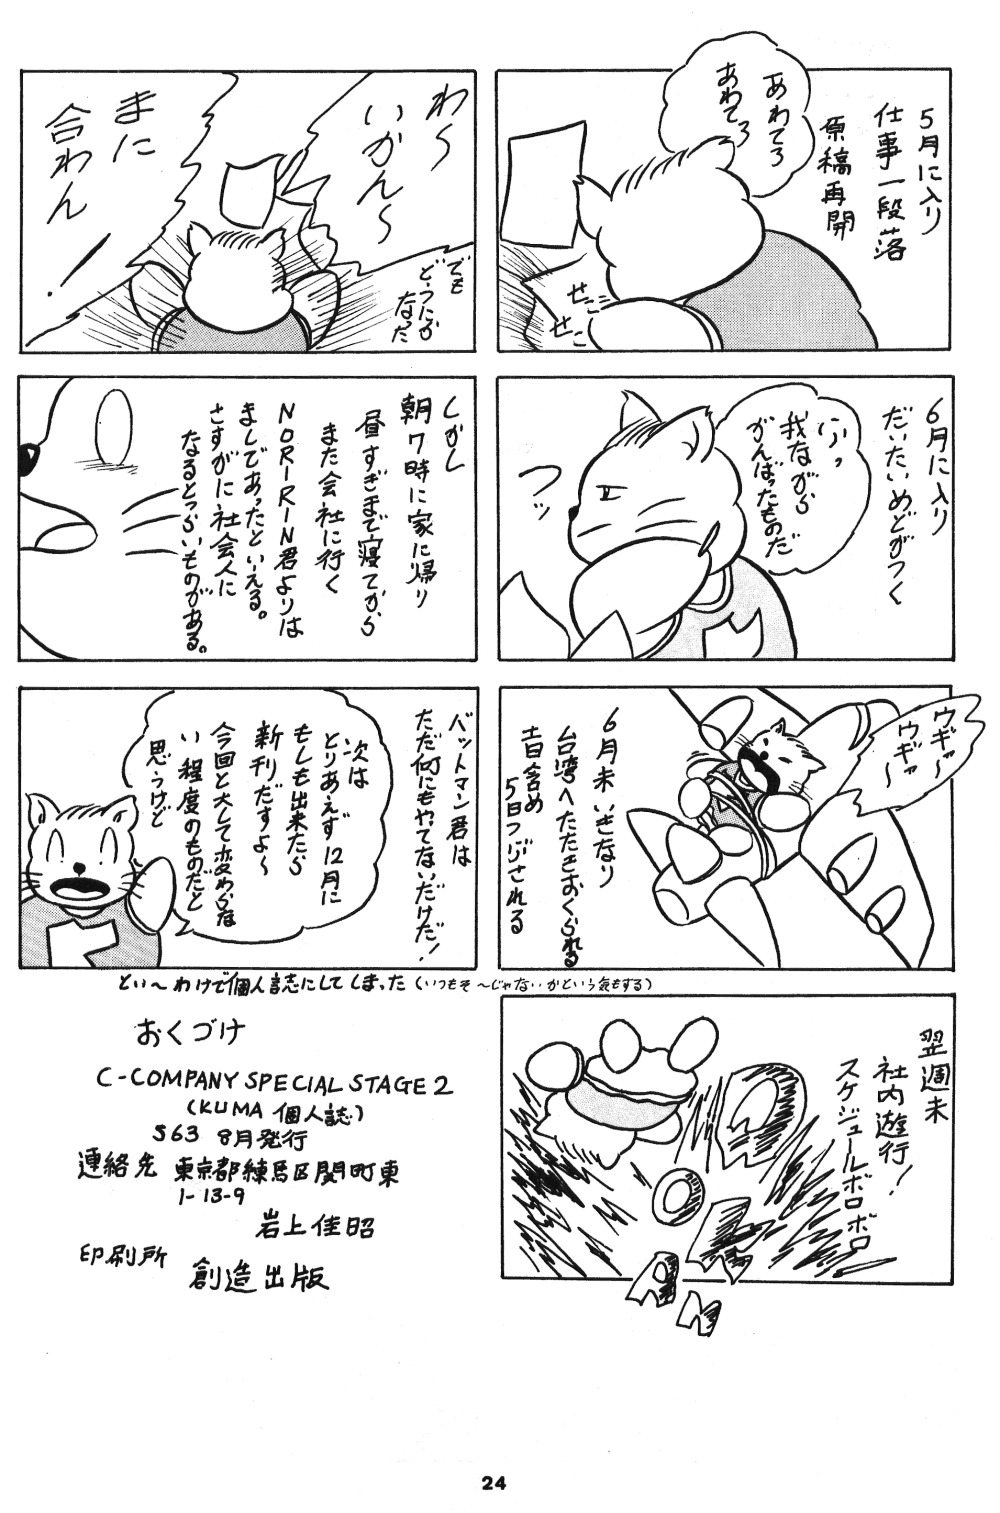 5月に入り
仕事一段落
原稿再開
あわてろ
あわてろ
せこ
せこ
6月に入り
だいたいめどがつく
ふっ
我ながら
がんばったものだ
フッ
6月末いきなり
台湾へたたきおくられる
土日含め
5日つぶされる
ウギャ〜
ウギャ〜
翌週末
社内遊行!
スケジュールボロボロ
わ〜
いかん〜
まに
合わん!
でも
どーにか
なった
しかし
朝7時に家に帰り
昼すぎまで寝てから
また会社に行く
NORIRIN君よりは
ましであったといえる。
さすがに社会人に
なるとつらいものがある。
バットマン君は
ただ何にもやてないだけだ!
次は
とりあえず12月に
もしも出来たら
新刊だすよ〜
今回と大して変わらな
い程度のものだと
思うけど
とい〜わけで個人誌にしてしまった(いつもそ〜じゃないかという気もする)
おくづけ
C-COMPANY SPECIAL STAGE 2
(KUMA 個人誌)
S63 8月発行
連絡先 東京都練馬区関町東
1-13-9
岩上佳昭
印刷所 創造出版
24